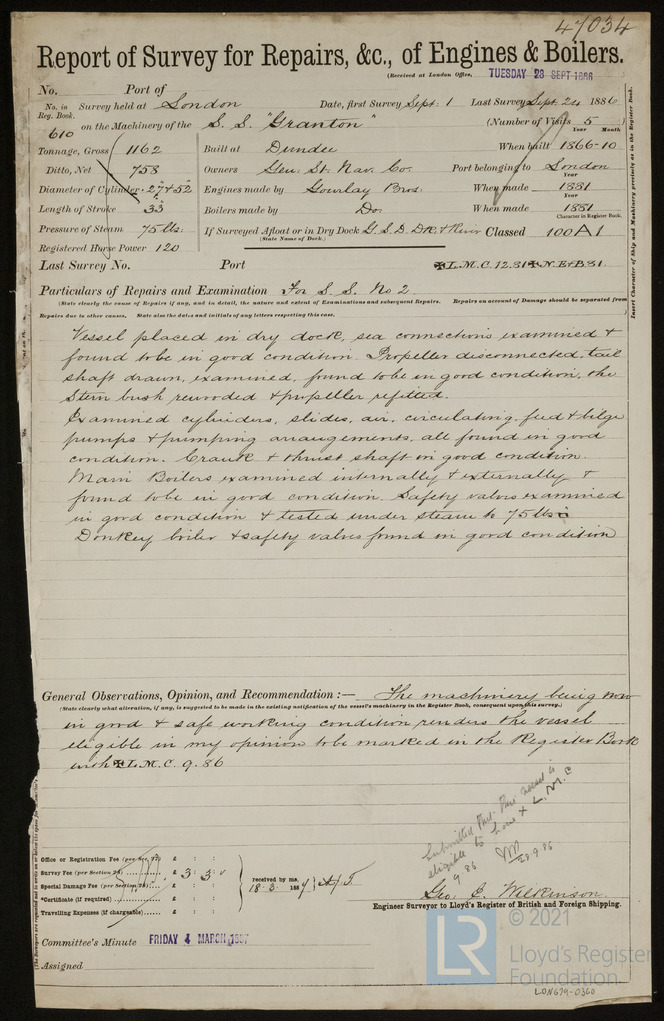 47034
Report of Survey for Repairs, &c., of Engines & Boilers.
(Received at London Office, TUESDAY 28 SEPT 1886
No. Port of
No. in Reg. Book. Survey held at London Date, first Survey Sept: 1 Last Survey Sept. 24 1886
610 on the Machinery of the S. S. "Granton" (Number of Visits 5 )
Year Month
Tonnage, Gross 1162 Built at Dundee When built 1866-10
Ditto, Net 758 Owners Gen: St. Nav. Co. Port belonging to London
Year
Diameter of Cylinder 27"+52" Engines made by Gourlay Bros: When made 1881
Year
Length of Stroke 33" Boilers made by Do. When made 1881
Character in Register Book.
Pressure of Steam 75 lbs: If Surveyed Afloat or in Dry Dock G. S. D. DK. & River Classed 100 A 1
(State Name of Dock.)
Registered Horse Power 120
Last Survey No. Port ✠L.M.C. 12.81 ✠N.E&B.81
Particulars of Repairs and Examination For S. S. No 2
(State clearly the cause of Repairs if any, and in detail, the nature and extent of Examinations and subsequent Repairs. Repairs on account of Damage should be separated from
Repairs due to other causes. State also the dates and initials of any letters respecting this case. )
Vessel placed in dry dock, sea connections examined &
found to be in good condition. Propeller disconnected, tail
shaft drawn, examined, found to be in good condition, the
Stern bush rewooded & propeller refitted.
Examined cylinders, slides, air, circulating, feed & bilge
pumps & pumping arrangements, all found in good
condition. Crank & thrust shaft in good condition.
Main Boilers examined internally & externally &
found to be in good condition. Safety valves examined
in good condition & tested under steam to 75 lbs
Donkey boiler & safety valves found in good condition
General Observations, Opinion, and Recommendation :— The machinery being now
(State clearly what alteration, if any, is suggested to be made in the existing notification of the vessel's machinery in the Register Book, consequent upon this survey.)
in good & safe working condition renders the vessel
eligible in my opinion to be marked in the Register Book
with ✠L.M.C. 9.86
Submitted that this vessel is
eligible to have ✠ L.M.C
9 86
28 9.86
Office or Registration Fee (per Sec. 27) £ : :
Survey Fee (per Section 28) £ 3 : 3 : 0
Special Damage Fee (per Section 28) £ : :
*Certificate (if required) £ : :
Travelling Expenses (if chargeable) £ : :
received by me,
18-3- 1887
Geo: E. Wilkinson
Engineer Surveyor to Lloyd's Register of British and Foreign Shipping.
Committee's Minute FRIDAY 4 MARCH 1887
Assigned
Insert Character of Ship and Machinery precisely as in the Register Book.
LR
© 2021
Lloyd's Register
Foundation
LON679-0360